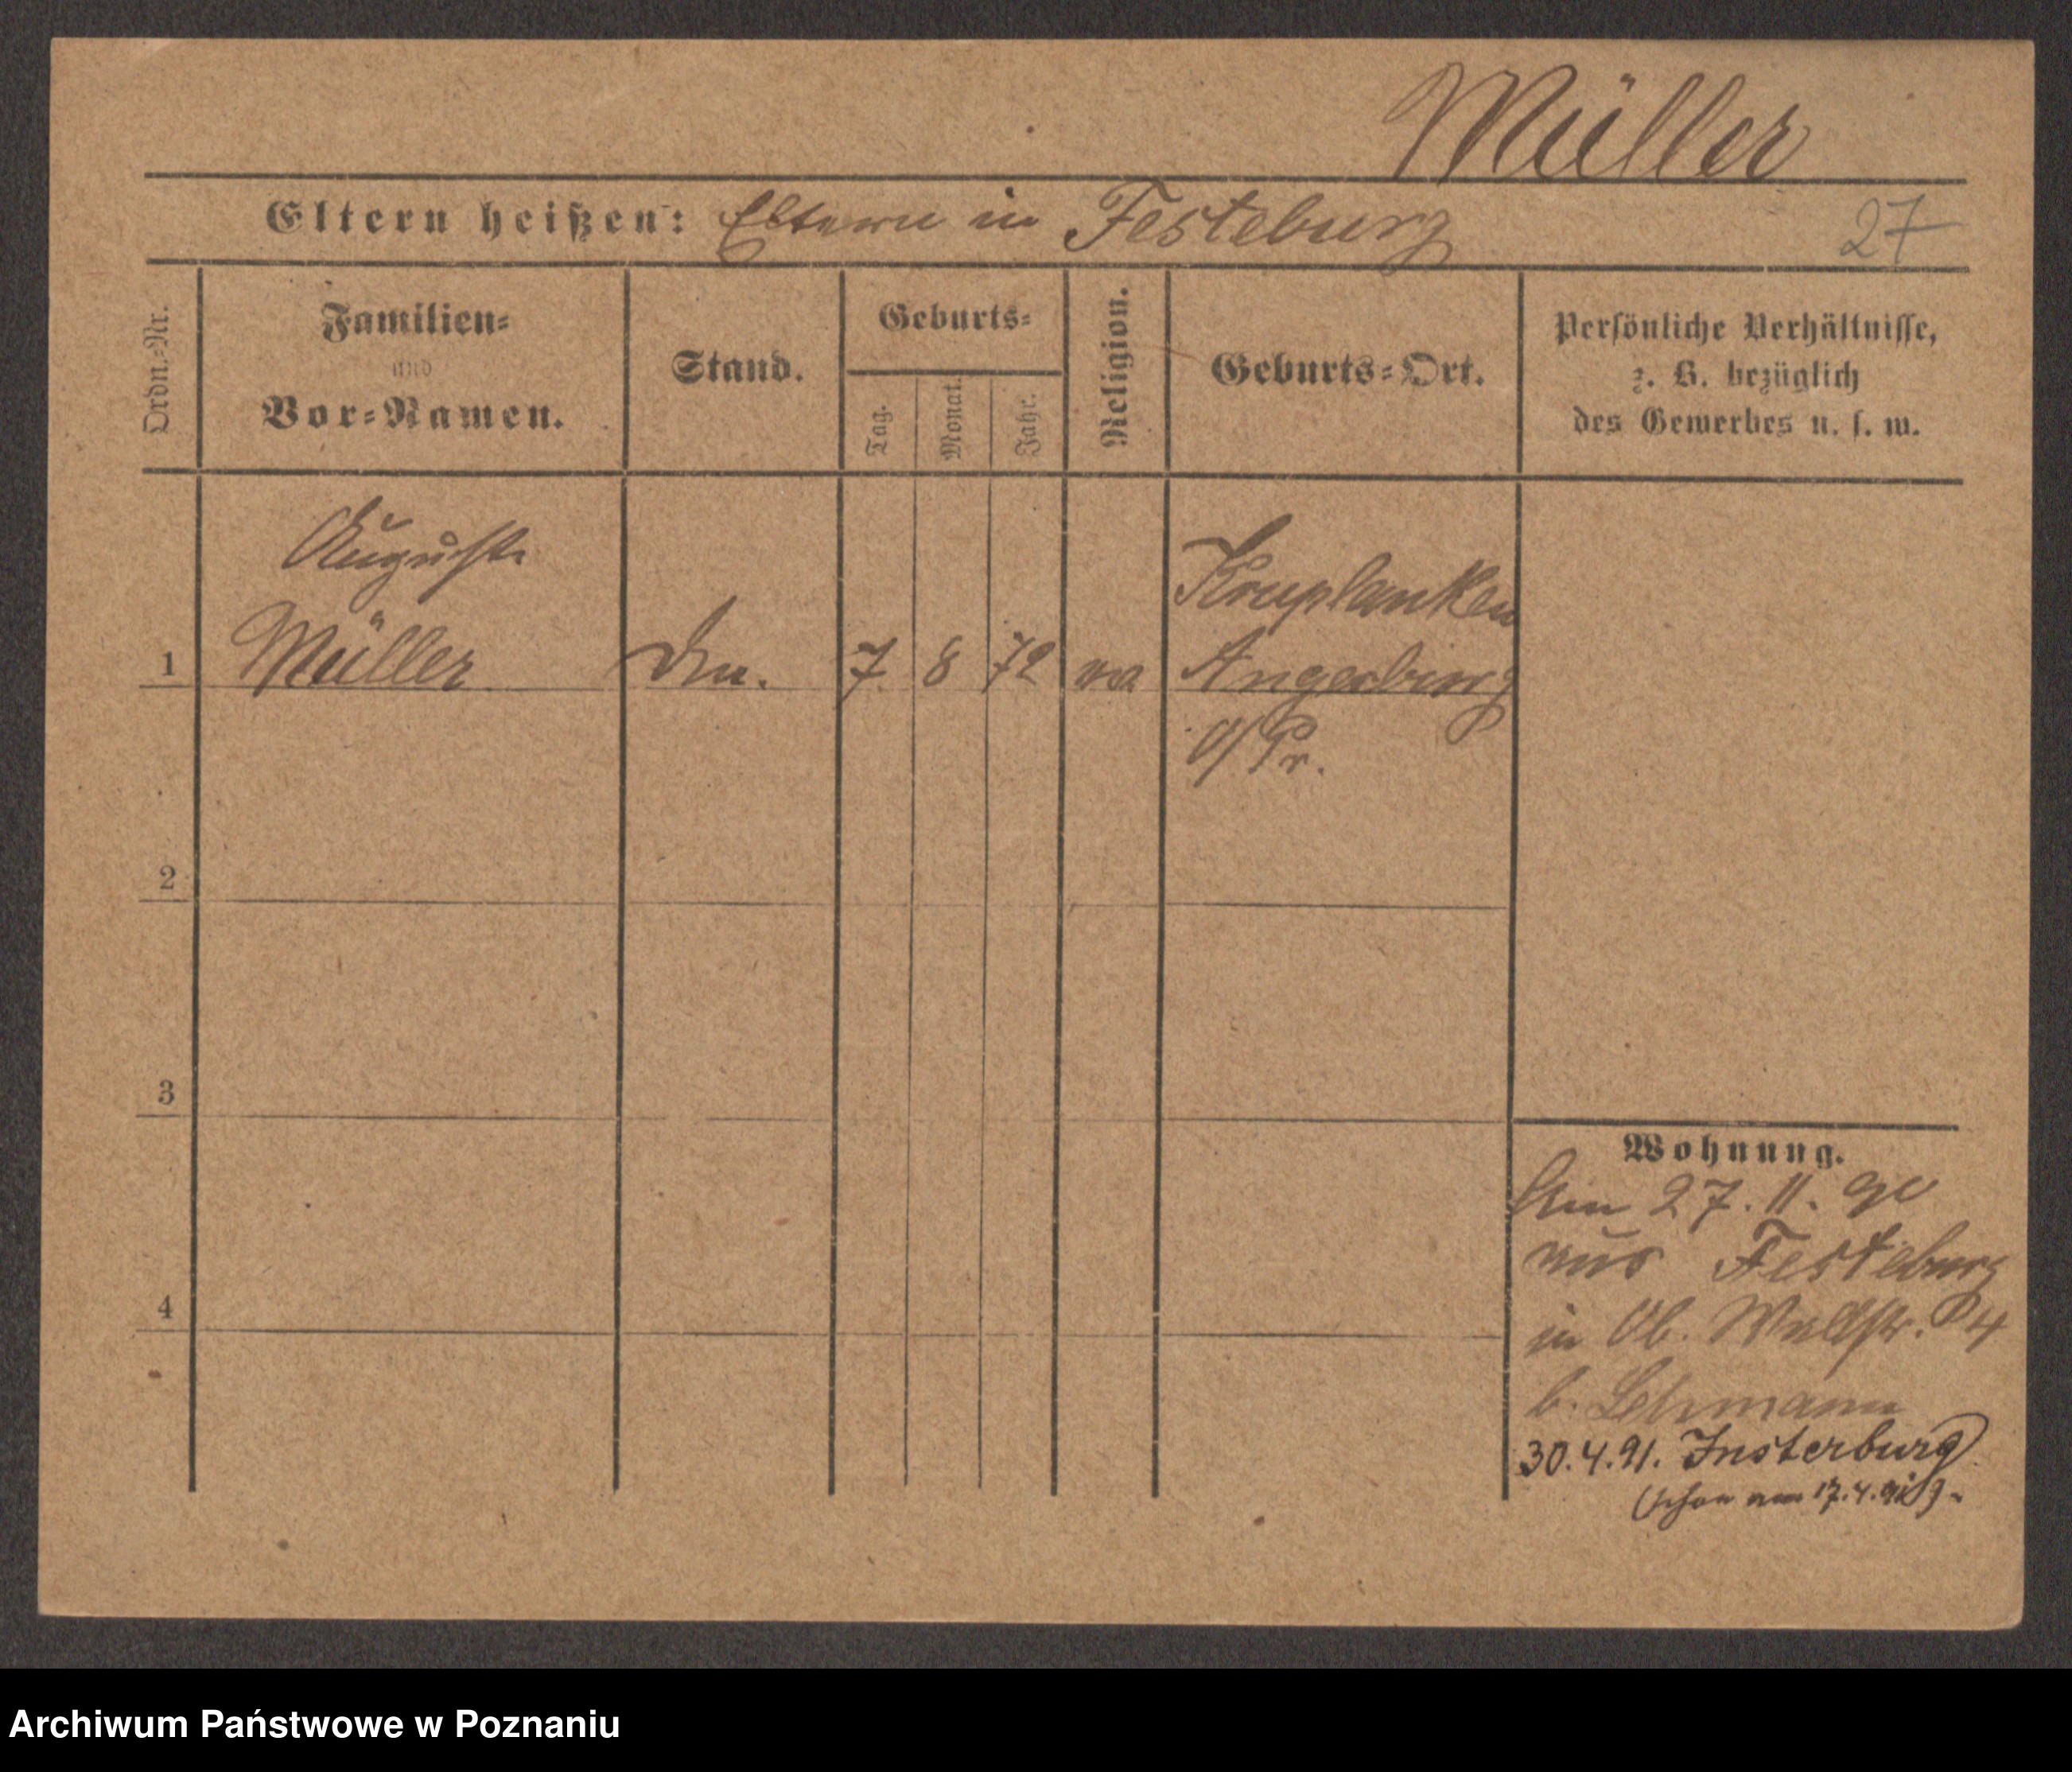 Müller
Eltern heißen: Eltern in Festeburg
27
Ordn.-Nr.
Familien-
und
Vor-Namen.
Stand.
Geburts-
Tag.
Monat.
Jahr.
Religion.
Geburts-Ort.
Persönliche Verhältnisse,
z. B. bezüglich
des Gewerbes u. s. w.
Auguste
Kruplanken
1 Müller 7 8 72 Angerburg
O/Pr.
2
3
4
Wohnung.
27. 11. 90
aus Festeburg
in Ob. Wallstr. 4
b. Lehmann
30.4.91. Insterburg
(schon am 17.4.91
Archiwum Państwowe w Poznaniu